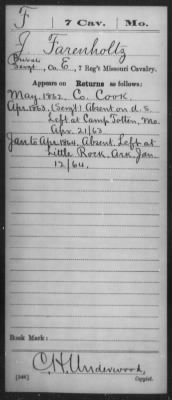 F | 7 Cav. | Mo.
J. Farenholtz
Private
Sergt., Co. E, 7 Reg't Missouri Cavalry.
Appears on
Returns as follows:
May, 1862, Co. Cook.
Apr. 1863, (Sergt.) Absent on d. s.
Left at Camp Totten, Mo.
Apr. 21/63
Jan. to Apr. 1864, Absent. Left at
Little Rock, Ark. Jan.
12/64.
Book Mark:
C. H. Underwood,
(546)
Copyist.